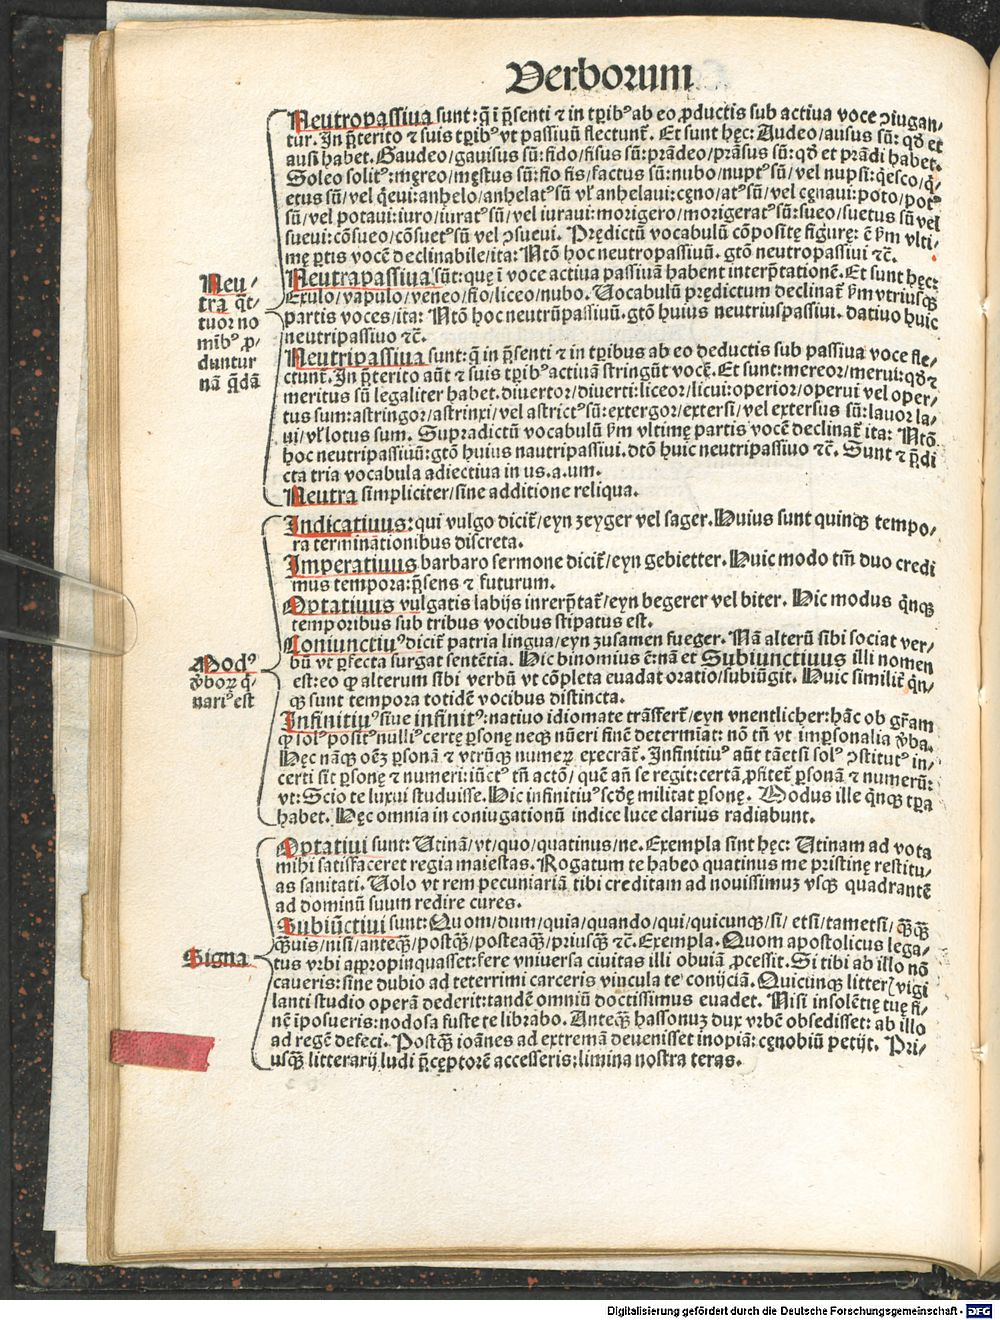 Verborum
Neutropassiua sunt: q̄ i p̄senti ⁊ in tꝑib⁹ ab eo ꝓductis sub actiua voce ↄiugan/
tur. In p̄terito ⁊ suis tꝑib⁹ vt passiuū flectunt̄. Et sunt hęc: Audeo/ausus sū: qđ et
ausi habet. Gaudeo/gauisus sū: fido/fisus sū: prādeo/prāsus sū: qđ et prādi habet.
Soleo solit⁹: męreo/męstus sū: fio fis/factus sū: nubo/nupt⁹ sū/ vel nupsi: q̄esco/q̄/
etus sū/ vel q̄eui: anhelo/anhelat⁹ sū vl̓ anhelaui: cęno/at⁹ sū/ vel cęnaui: poto/pot⁹
sū/ vel potaui: iuro/iurat⁹ sū/ vel iuraui: morigero/morigerat⁹ sū: sueo/suetus sū vel
sueui: cōsueo/cōsuet⁹ sū vel ↄsueui. Prędictū vocabulū cōpositę figurę: ē ẜm vlti/
mę ꝑtis vocē declinabile/ita: Ntō hoc neutropassiuū. gtō neutropassiui ⁊c̄.
Neutrapassiua sūt: quę i voce actiua passiuā habent interp̄tationē. Et sunt hęc:
Exulo/vapulo/veneo/fio/liceo/nubo. Vocabulū prędictum declinat̄ ẜm vtriusqꝫ
partis voces/ita: Ntō hoc neutrūpassiuū. gtō huius neutriuspassiui. datiuo huic
neutripassiuo ⁊c̄.
Neutripassiua sunt: q̄ in p̄senti ⁊ in tꝑibus ab eo deductis sub passiua voce fle/
ctunt̄. In p̄terito aūt ⁊ suis tꝑib⁹ actiuā stringūt vocē. Et sunt: mereor/merui: qđ ⁊
meritus sū legaliter habet. diuertor/diuerti: liceor/licui: operior/operui vel oper/
tus sum: astringor/astrinxi/ vel astrict⁹ sū: extergor/extersi/ vel extersus sū: lauor la/
ui/ vl̓ lotus sum. Supradictū vocabulū ẜm vltimę partis vocē declinat̄ ita: Ntō
hoc neutripassiuū: gtō huius nautripassiui. dtō huic neutripassiuo ⁊c̄. Sunt ⁊ p̄di
cta tria vocabula adiectiua in us.a.um.
Neutra simpliciter/sine additione reliqua.
Neu/
tra q̄t/
tuor no
mīb⁹ ꝓ/
duntur
nā q̄dā
Indicatiuus: qui vulgo dicit̄/eyn zeyger vel sager. Huius sunt quinqꝫ tempo/
ra terminationibus discreta.
Imperatiuus barbaro sermone dicit̄/eyn gebietter. Huic modo tm̄ duo credi
mus tempora: p̄sens ⁊ futurum.
Optatiuus vulgatis labijs inrerp̄tat̄/eyn begerer vel biter. Hic modus q̄nqꝫ
temporibus sub tribus vocibus stipatus est.
Coniunctiu⁹ dicit̄ patria lingua/eyn zusamen fueger. Nā alterū sibi sociat ver/
bū vt ꝑfecta surgat sentētia. Hic binomius ē: nā et Subiunctiuus illi nomen
est: eo ꝙ alterum sibi verbū vt cōpleta euadat oratio/subiūgit. Huic similit̄ q̄n/
qꝫ sunt tempora totidē vocibus distincta.
Infinitiu⁹ siue infinit⁹: natiuo idiomate trāsfert̄/eyn vnentlicher: hāc ob gr̄am
ꝙ sol⁹ posit⁹ nulli⁹ certę ꝑsonę neqꝫ nūeri finē determiat: nō tn̄ vt imꝑsonalia v̓ba.
Hęc nāqꝫ oēꝫ ꝑsonā ⁊ vtrūqꝫ numeꝝ execrāt̄. Infinitiu⁹ aūt tāetsi sol⁹ ↄstitut⁹ in/
certi sit ꝑsonę ⁊ numeri: iūct⁹ tn̄ actō/ quē añ se regit: certā ꝓfitet̄ ꝑsonā ⁊ numerū:
vt: Scio te luxui studuisse. Hic infinitiu⁹ scđę militat ꝑsonę. Modus ille q̄nqꝫ tꝑa
habet. Hęc omnia in coniugationū indice luce clarius radiabunt.
Mod⁹
v̓boꝝ q̄/
nari⁹ est
Optatiui sunt: Utinā/vt/quo/quatinus/ne. Exempla sint hęc: Utinam ad vota
mihi satisfaceret regia maiestas. Rogatum te habeo quatinus me pristinę restitu/
as sanitati. Uolo vt rem pecuniariā tibi creditam ad nouissimuꝫ vsqꝫ quadrantē
ad dominū suum redire cures.
Subiūctiui sunt: Quom/dum/quia/quando/qui/quicunqꝫ/si/ etsi/tametsi/ qꝫ̄qꝫ̄
qꝫ̄uis/nisi/anteqꝫ̄/postqꝫ̄/posteaqꝫ̄/priusqꝫ̄ ⁊c̄. Exempla. Quom apostolicus lega/
tus vrbi appropinquasset: fere vniuersa ciuitas illi obuiā ꝓcessit. Si tibi ab illo nō
caueris: sine dubio ad teterrimi carceris vincula te conijciā. Quicūnqꝫ litter⁊ vigi
lanti studio operā dederit: tandē omniū doctissimus euadet. Nisi insolētię tuę fi/
nē iposueris: nodosa fuste te librabo. Anteqꝫ̄ hassonuꝫ dux vrbē obsedisset: ab illo
ad regē defeci. Postqꝫ̄ ioānes ad extremā deuenisset inopiā: cęnobiū petijt. Pri/
usqꝫ̄ litterarij ludi p̄cęptorē accesseris: limina nostra teras.
Signa
Digitalisierung gefördert durch die Deutsche Forschungsgemeinschaft - DFG